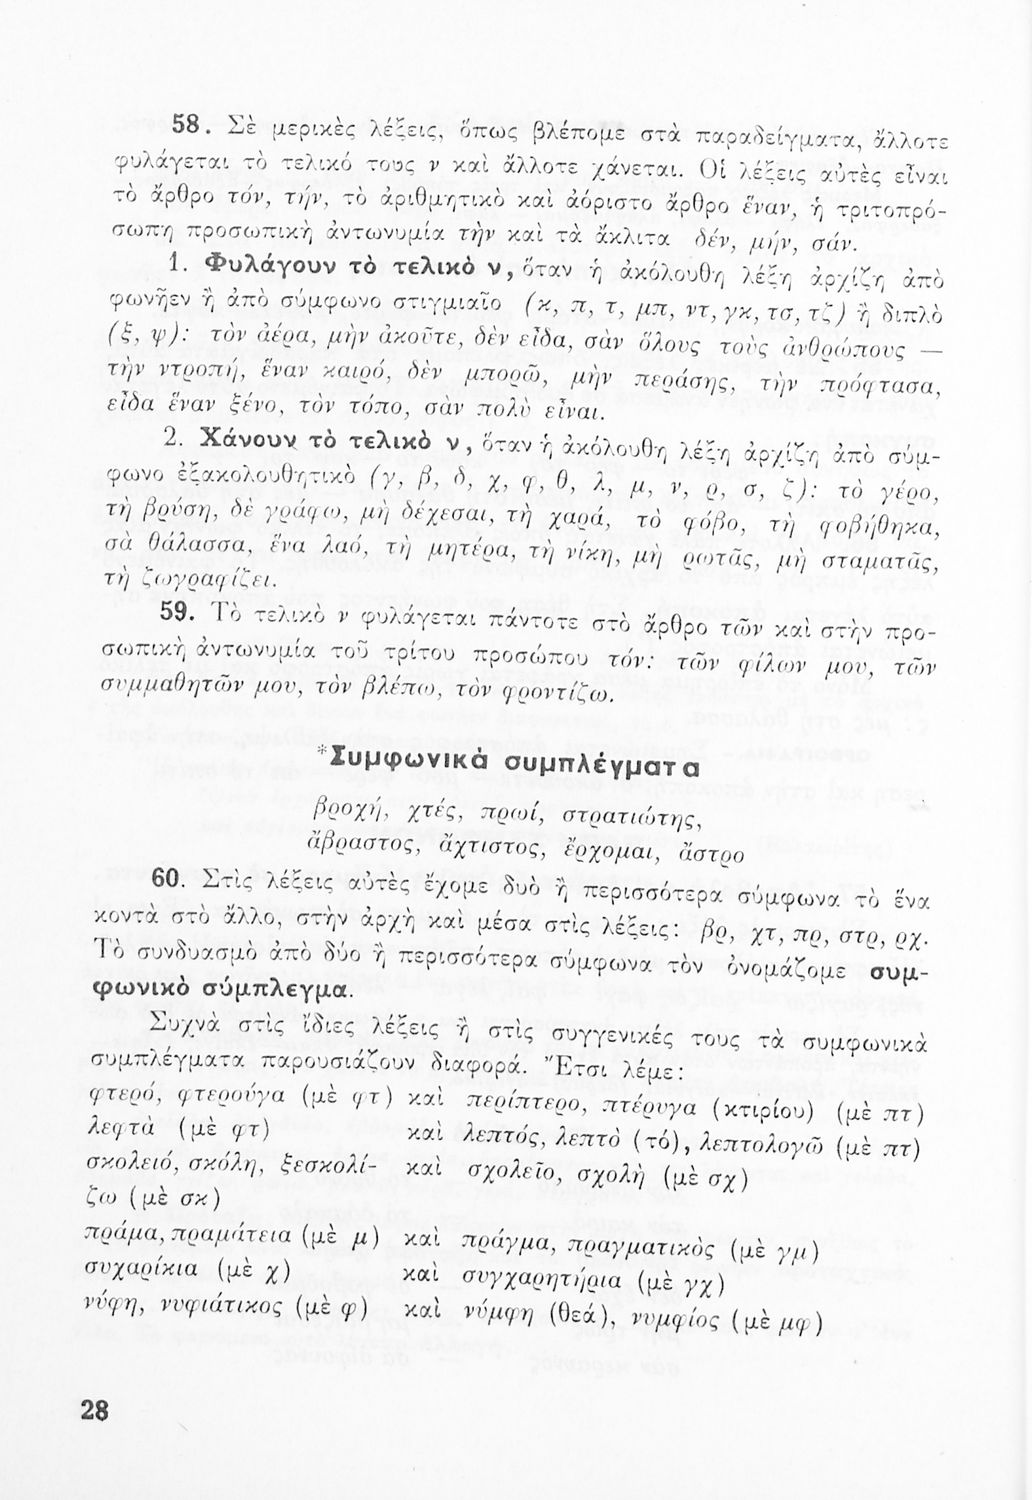 58. Σὲ μερικὲς λέξεις, ὅπως βλέπομε στὰ παραδείγματα, ἄλλοτε
φυλάγεται τὸ τελικό τους ν καὶ ἄλλοτε χάνεται. Οἱ λέξεις αὐτὲς εἶναι
τὸ ἄρθρο τόν, τήν, τὸ ἀριθμητικὸ καὶ ἀόριστο ἄρθρο ἕναν, ἡ τριτοπρό-
σωπη προσωπικὴ ἀντωνυμία τὴν καὶ τὰ ἄκλιτα δέν, μήν, σάν.
1. Φυλάγουν τὸ τελικὸ ν, ὅταν ἡ ἀκόλουθη λέξη ἀρχίζη ἀπὸ
φωνῆεν ἢ ἀπὸ σύμφωνο στιγμιαῖο (κ, π, τ, μπ, ντ, γκ, τσ, τζ) ἢ διπλὸ
(ξ, ψ): τὸν ἀέρα, μὴν ἀκοῦτε, δὲν εἶδα, σὰν ὅλους τοὺς ἀνθρώπους —
τὴν ντροπή, ἕναν καιρό, δὲν μπορῶ, μὴν περάσης, τὴν πρόφτασα,
εἶδα ἕναν ξένο, τὸν τόπο, σὰν πολὺ εἶναι.
2. Χάνουν τὸ τελικὸ ν, ὅταν ἡ ἀκόλουθη λέξη ἀρχίζη ἀπὸ σύμ-
φωνο ἐξακολουθητικὸ (γ, β, δ, χ, φ, θ, λ, μ, ν, ρ, σ, ζ): τὸ γέρο,
τὴ βρύση, δὲ γράφω, μὴ δέχεσαι, τὴ χαρά, τὸ φόβο, τὴ φοβήθηκα,
σὰ θάλασσα, ἕνα λαό, τὴ μητέρα, τὴ νίκη, μὴ ρωτᾶς, μὴ σταματᾶς,
τὴ ζωγραφίζει.
59. Τὸ τελικὸ ν φυλάγεται πάντοτε στὸ ἄρθρο τῶν καὶ στὴν προ-
σωπικὴ ἀντωνυμία τοῦ τρίτου προσώπου τόν: τῶν φίλων μου, τῶν
συμμαθητῶν μου, τὸν βλέπω, τὸν φροντίζω.
*Συμφωνικὰ συμπλέγματα
βροχή, χτές, πρωί, στρατιώτης,
ἄβραστος, ἄχτιστος, ἔρχομαι, ἄστρο
60. Στὶς λέξεις αὐτὲς ἔχομε δυὸ ἢ περισσότερα σύμφωνα τὸ ἕνα
κοντὰ στὸ ἄλλο, στὴν ἀρχὴ καὶ μέσα στὶς λέξεις: βρ, χτ, πρ, στρ, ρχ.
Τὸ συνδυασμὸ ἀπὸ δύο ἢ περισσότερα σύμφωνα τὸν ὀνομάζομε συμ-
φωνικὸ σύμπλεγμα.
Συχνὰ στὶς ἴδιες λέξεις ἢ στὶς συγγενικές τους τὰ συμφωνικὰ
συμπλέγματα παρουσιάζουν διαφορά. Ἔτσι λέμε:
φτερό, φτερούγα (μὲ φτ) καὶ περίπτερο, πτέρυγα (κτιρίου) (μὲ πτ)
λεφτὰ (μὲ φτ) καὶ λεπτός, λεπτὸ (τό), λεπτολογῶ (μὲ πτ)
σκολειό, σκόλη, ξεσκολί- καὶ σχολεῖο, σχολὴ (μὲ σχ)
ζω (μὲ σκ)
πράμα, πραμάτεια (μὲ μ) καὶ πράγμα, πραγματικὸς (μὲ γμ)
συχαρίκια (μὲ χ) καὶ συγχαρητήρια (μὲ γχ)
νύφη, νυφιάτικος (μὲ φ) καὶ νύμφη (θεά), νυμφίος (μὲ μφ)
28